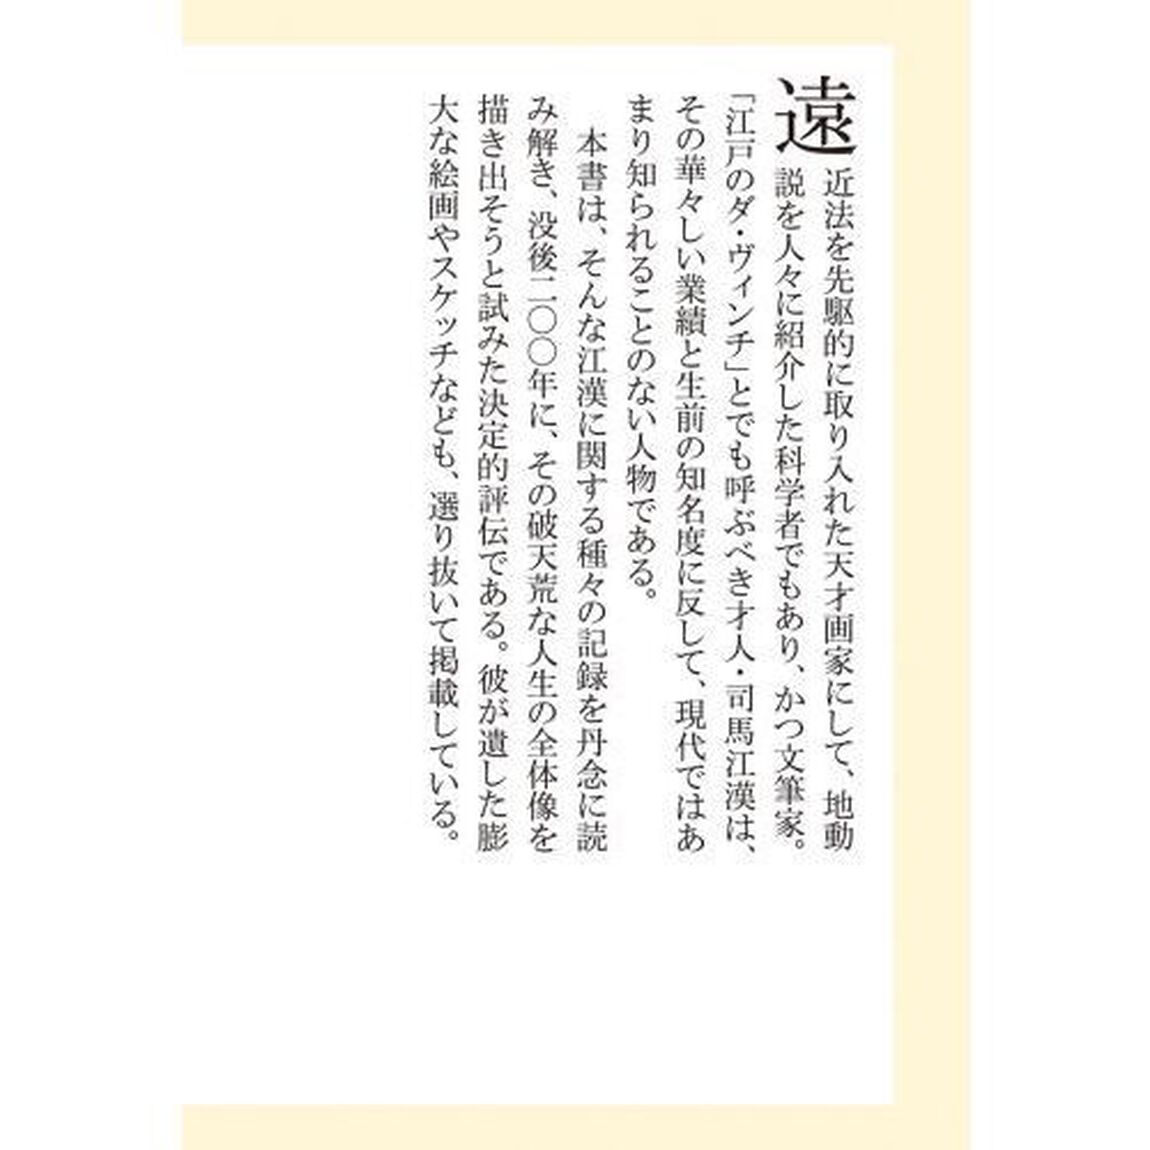 遠近法を先駆的に取り入れた天才画家にして、地動
説を人々に紹介した科学者でもあり、かつ文筆家。
「江戸のダ・ヴィンチ」とでも呼ぶべき才人・司馬江漢は、
その華々しい業績と生前の知名度に反して、現代ではあ
まり知られることのない人物である。
本書は、そんな江漢に関する種々の記録を丹念に読
み解き、没後二〇〇年に、その破天荒な人生の全体像を
描き出そうと試みた決定的評伝である。彼が遺した膨
大な絵画やスケッチなども、選り抜いて掲載している。